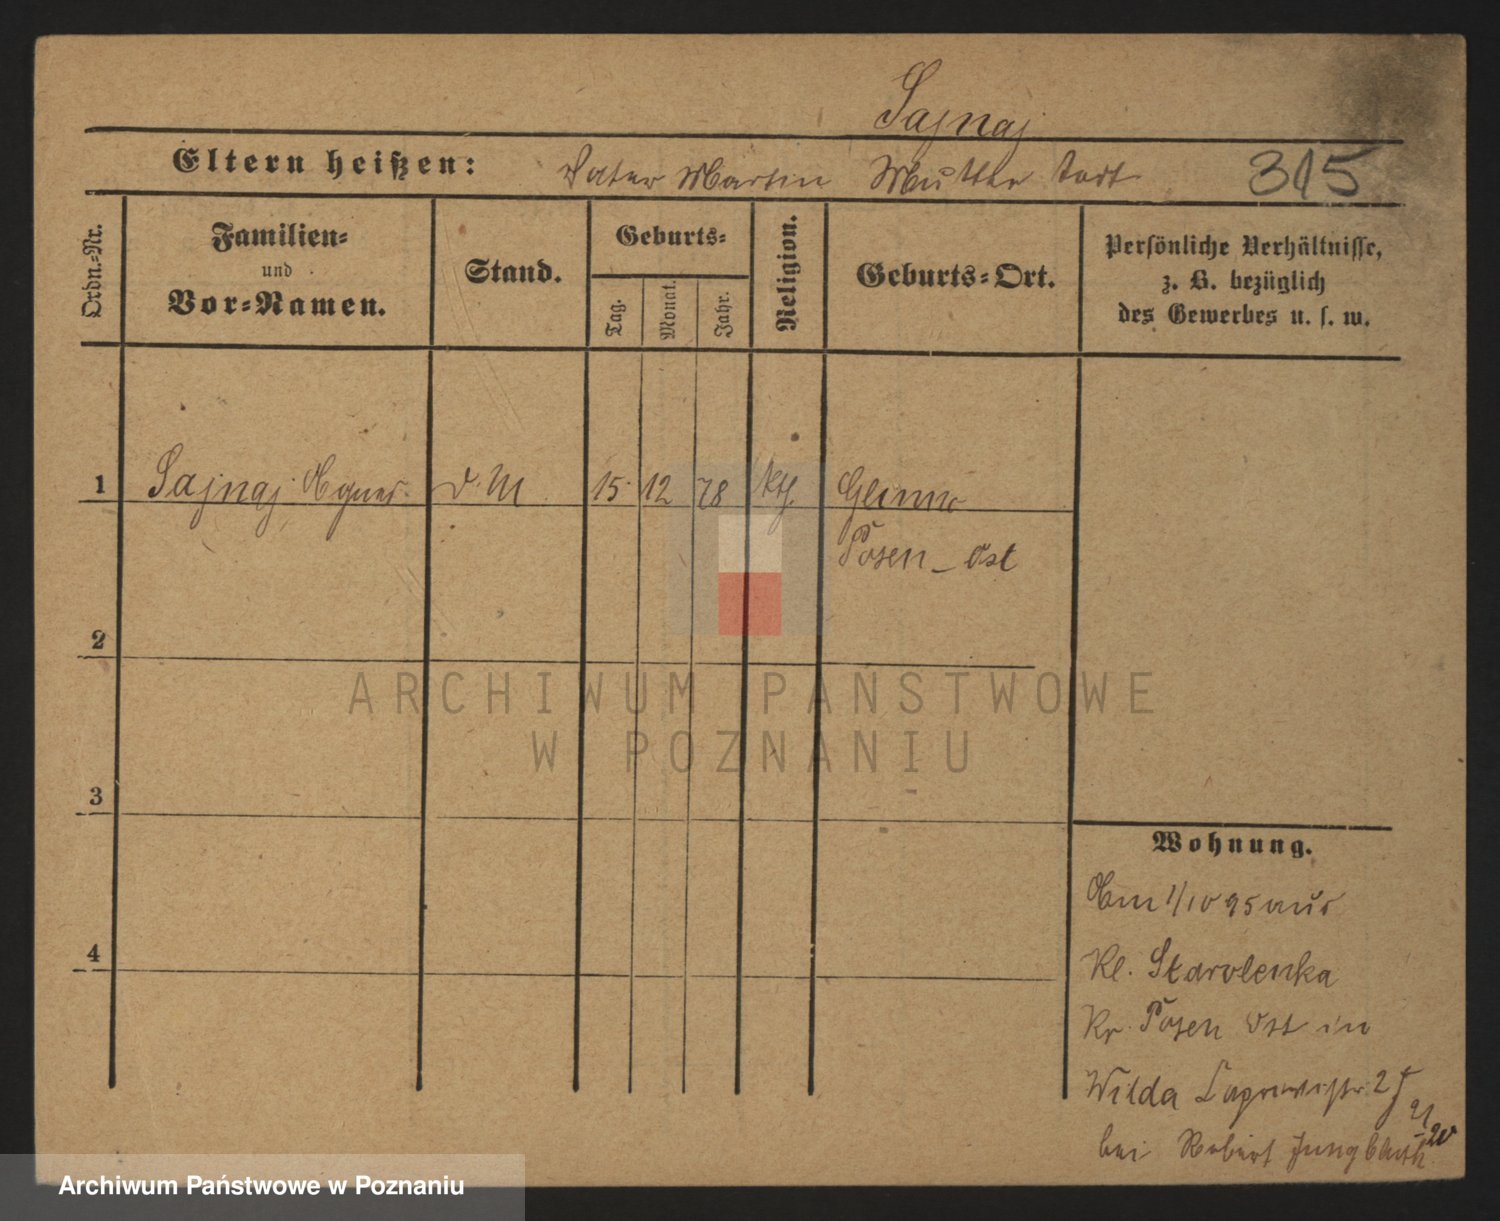 Sajnaj
Eltern heißen: Vater Martin Mutter todt 315
Ordn.-Nr.
Familien-
und
Vor-Namen.
Stand.
Geburts-
Tag.
Monat.
Jahr.
Religion.
Geburts-Ort.
Persönliche Verhältnisse,
z. B. bezüglich
des Gewerbes u. s. w.
1 Sajnaj Agnes. d. M 15 12 78 kth Glinno
Posen-Ost
2
3
4
Wohnung.
Am 1/10 95 aus
Kl. Starolenka
Kr. Posen Ost in
Wilda 2
bei Robert Jungbluth
ARCHIWUM PAŃSTWOWE
W POZNANIU
Archiwum Państwowe w Poznaniu